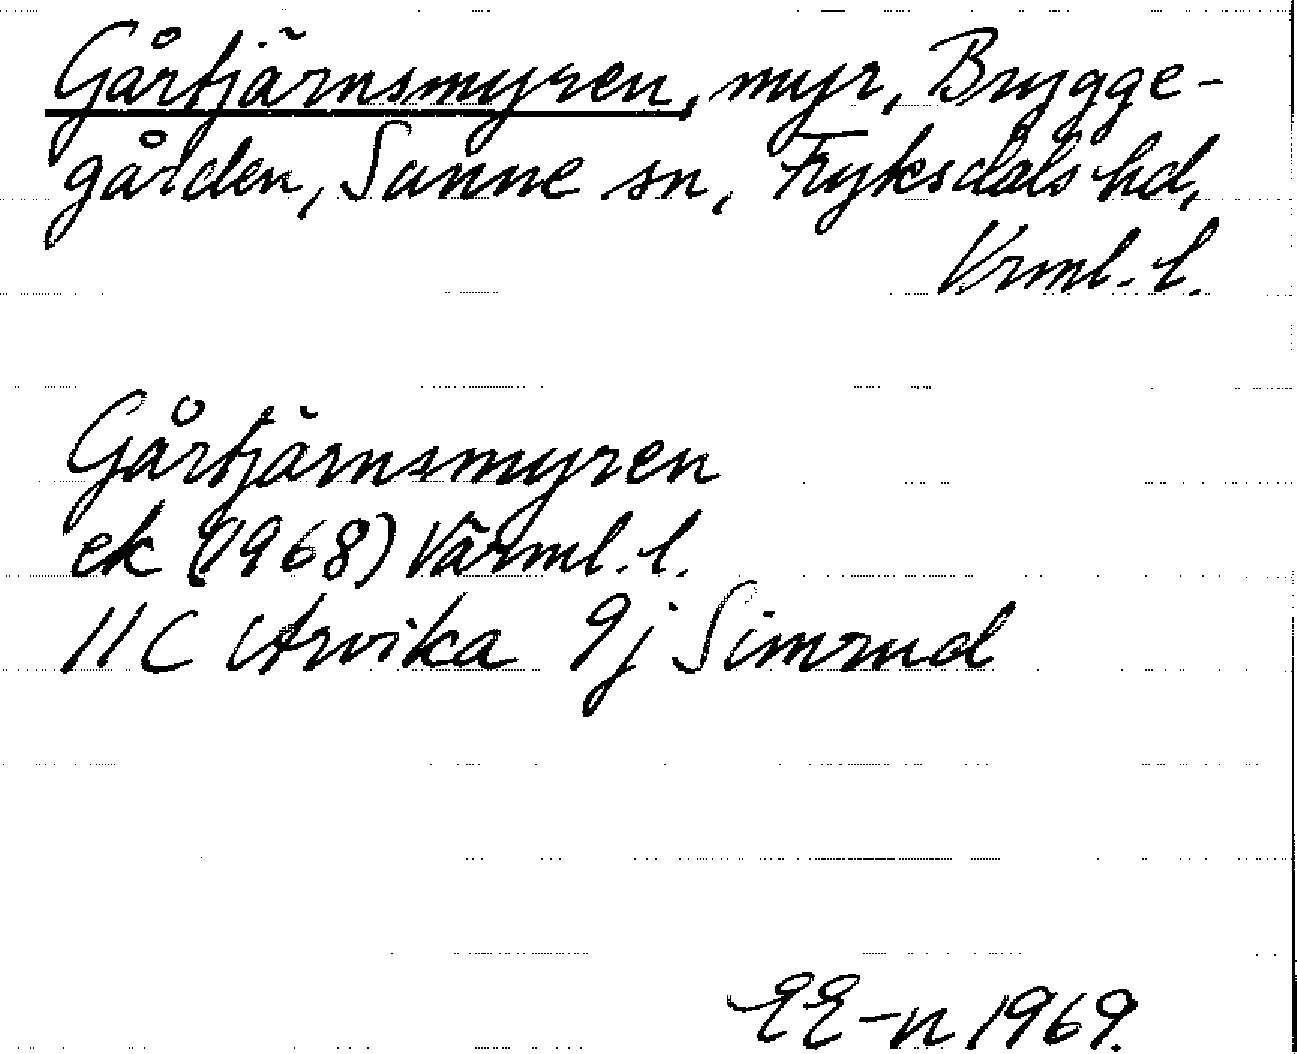 Gårtjärnsmyren, myr, Brygge-
gården, Sunne sn, Fryksdals hd,
Vrml. l.
Gårtjärnsmyren
ek (1968) Värml. l.
11C Arvika 9j Simrud
EE-n 1969.